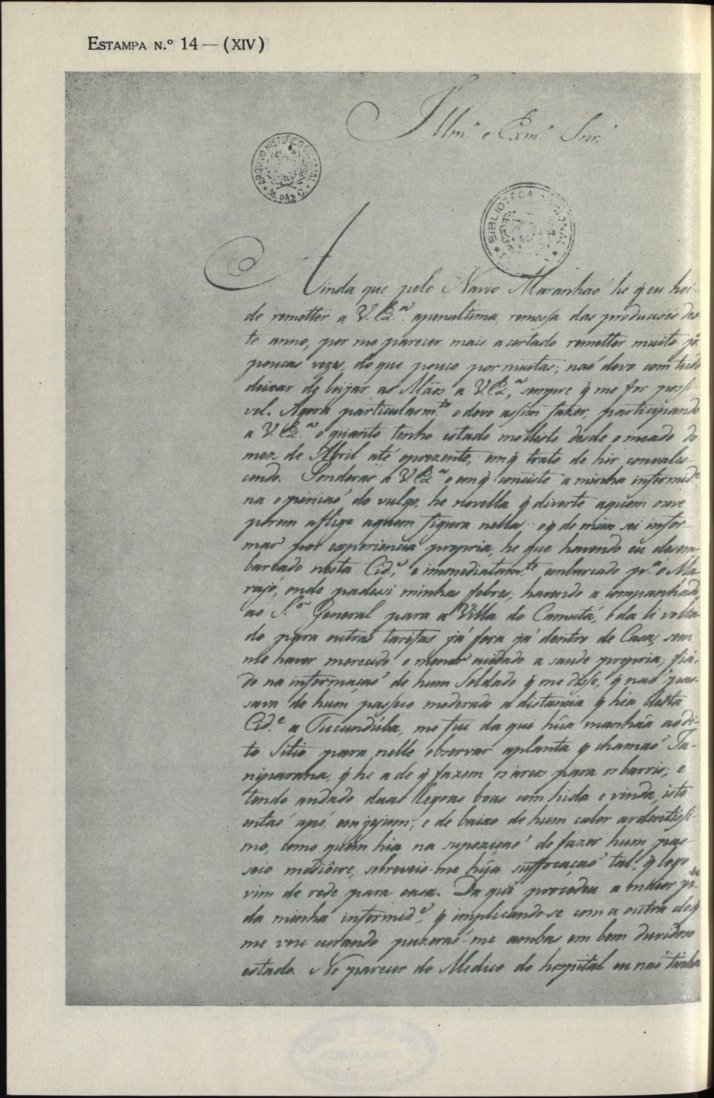 ESTAMPA N.º 14 — (XIV)
Illm.º e Exm.º Snr.
ARQUIVO HISTORICO COLONIAL
BIBLIOTECA NACIONAL
Ainda que pelo Navio Maranhaõ he q̃ eu hei
de remetter a V. Ex.ª apenultima remessa das producções des-
te anno, por me parecer mais acertado remetter muito p.r
poucas vezes, do que pouco por muitas; naõ devo com tudo
deixar de beijar as Mãos a V. Ex.ª, sempre q̃ me for possi-
vel. Agora particularm.te o devo assim fazer, participando
a V. Ex.ª o quanto tenho estado molesto desde o meado do
mez de Abril até oprezente, em q̃ trato de hir convales-
cendo. Ponderar a V. Ex.ª o em q̃ consiste a minha infermid.e
na opiniaõ do vulgo, he novella, q̃ diverte aquem ouve
porem aflige aquem figura nella: oq̃ de mim sei infor-
mar por experiencia propria, he que havendo eu desem-
barcado nesta Cid.e, e immediatam.te embarcado p.ª o Ma-
rajó, onde padeci minhas febres, havendo acompanhado
ao S.or General para a Villa do Camutá, e da li volta-
do para outras tarefas já fora já dentro de Casa, sem
me haver merecido o menor cuidado a saude propria; fia-
do na informaçaõ de hum Soldado q̃ me disse, q̃ naõ pas-
sava de hum passeio moderado a distancia q̃ hia desta
Cid.e a Tucundúba, me fui da qui hũa manhãa ao di-
to Sitio para nelle observar aplanta q̃ chamaõ Ta-
niparana, q̃ he a de q̃ fazem os arcos para os barris; e
tendo andado duas legoas boas com hida e vinda, isto
entaõ apé, em jejum, e de baixo de hum calor ardentissi-
mo, como quem hia na supoziçaõ de fazer hum pas-
seio mediocre, sobreveio-me hũa suffocaçaõ tal, q̃ logo
vim de rede para casa. Da qui procedeu a maior p.te
da minha infermid.e, q̃ implicando-se com a outra de q̃
me vou curando puzeraõ-me ambas em bem duvidoso
estado. No parecer do Medico do hospital eu naõ tinha